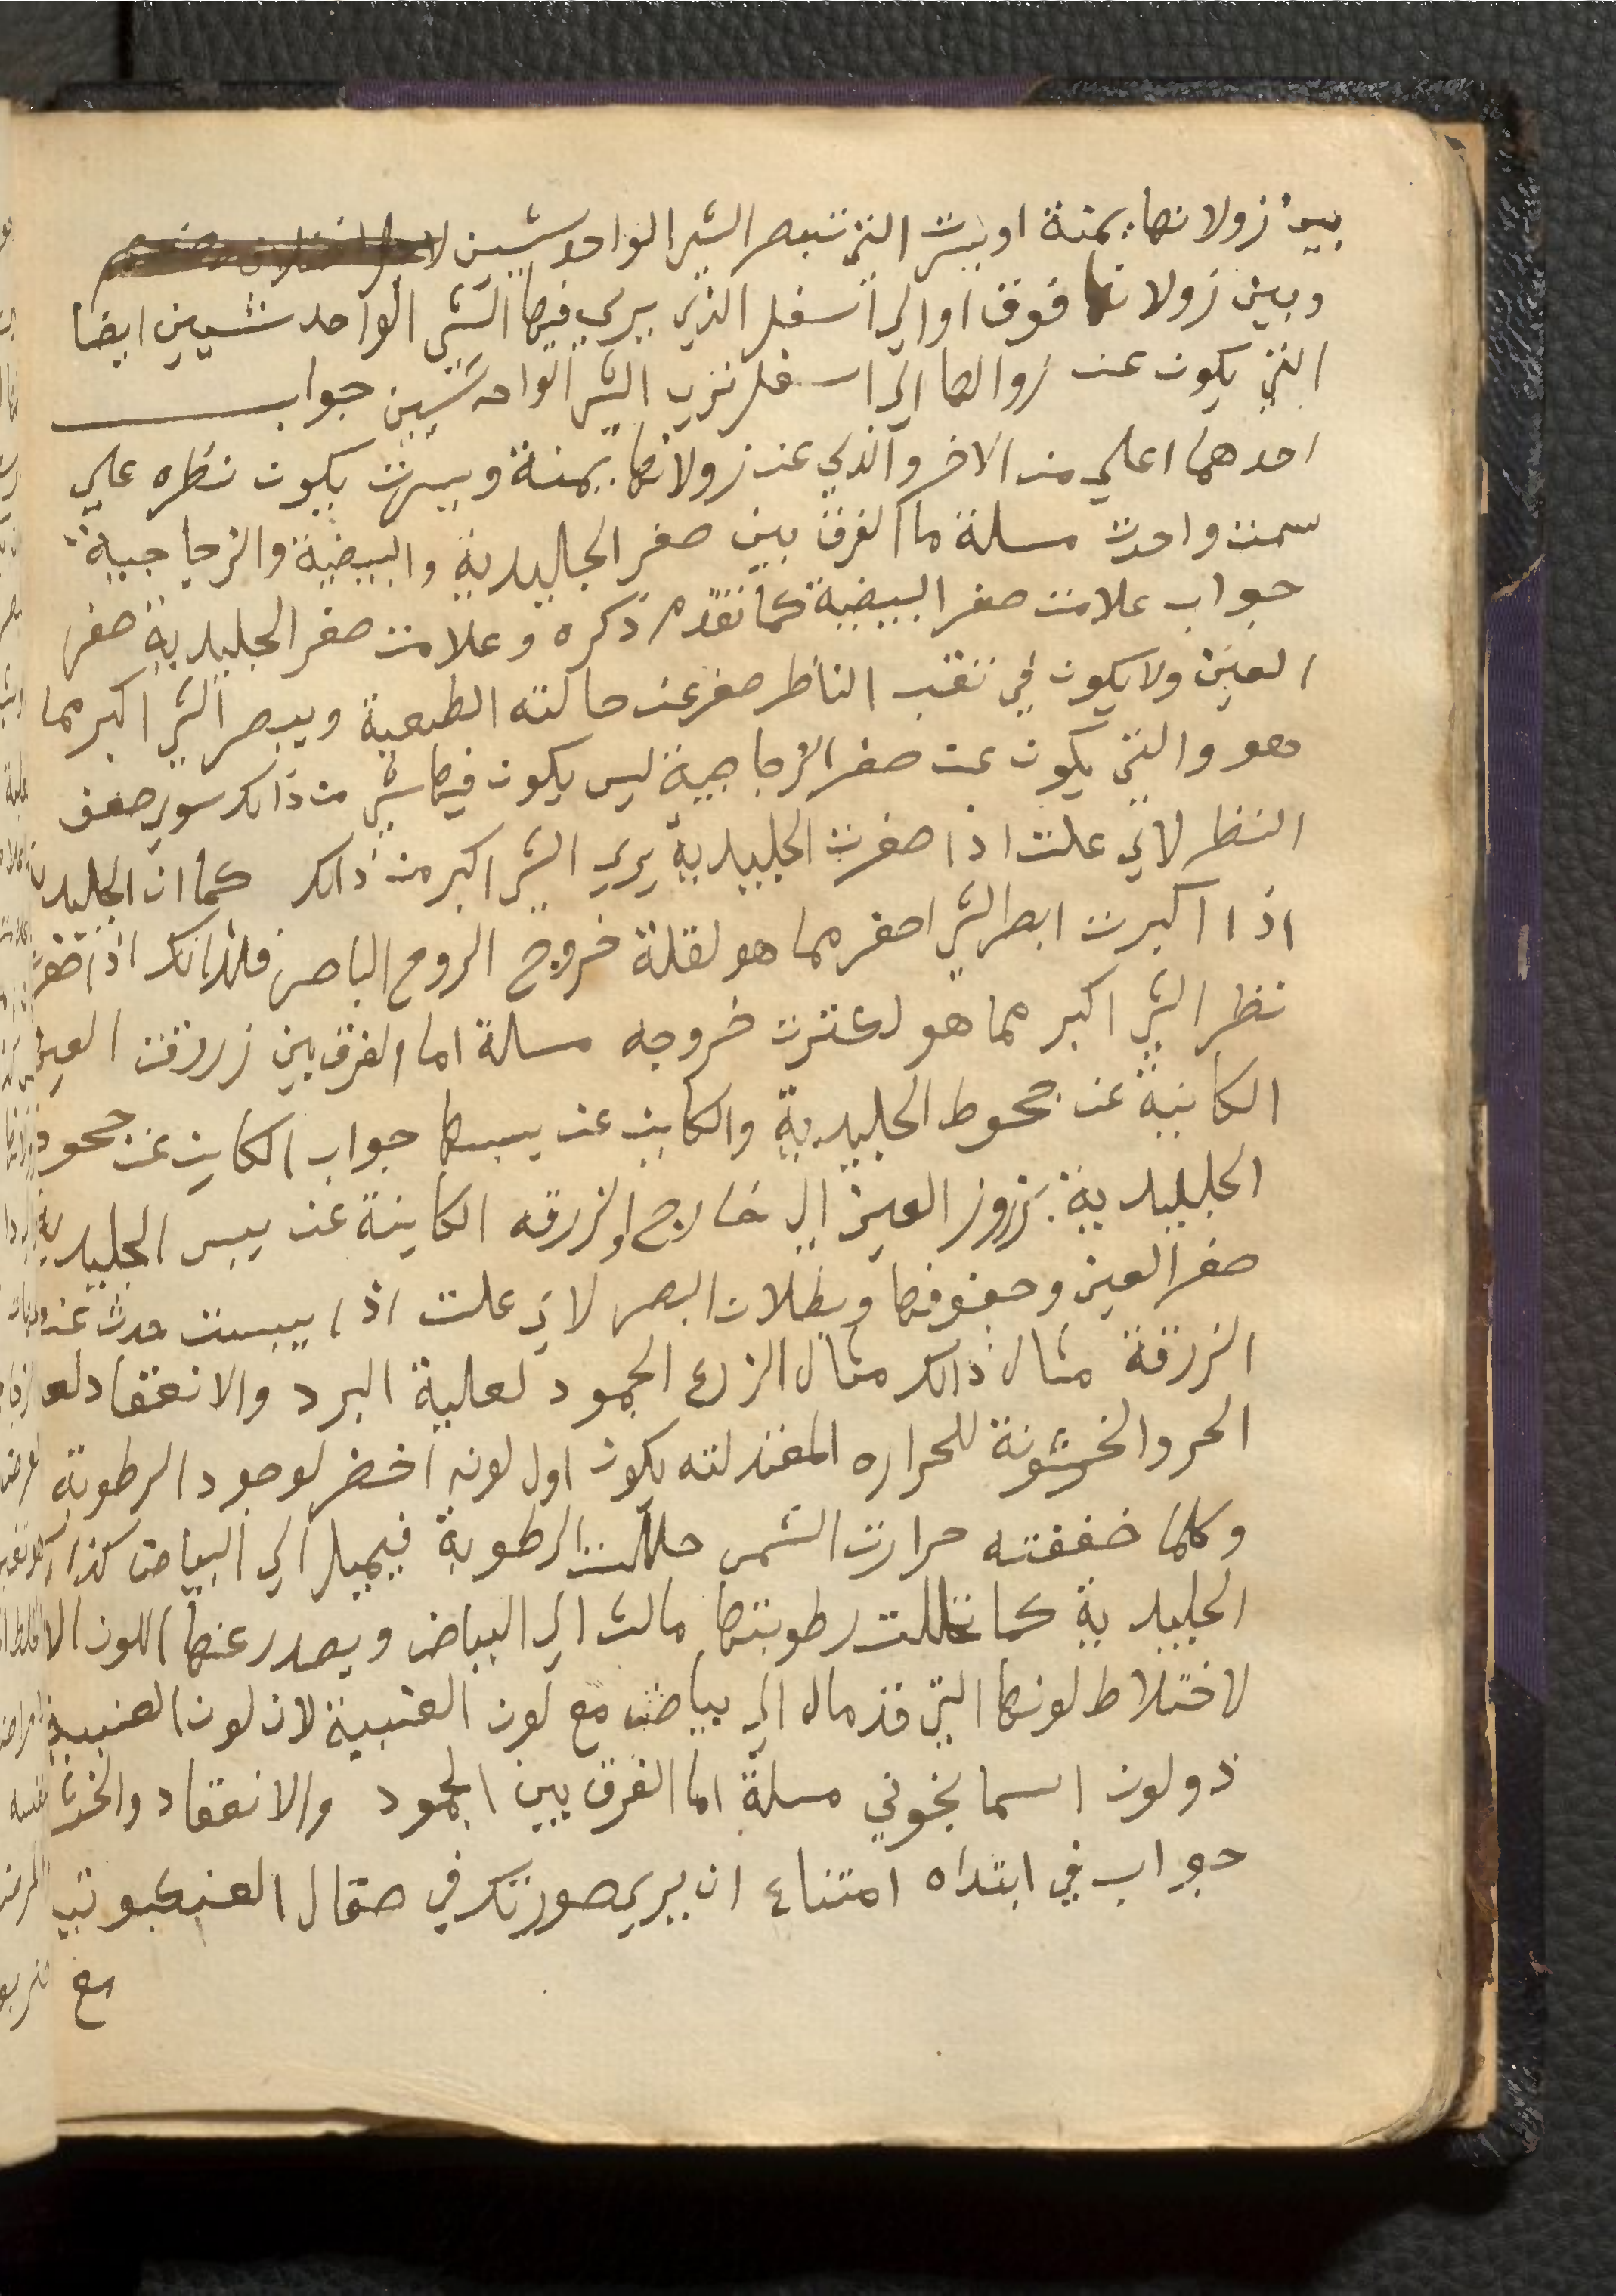 بين زولانها يمنة او يسرت التي تبصر الشي الواحد شيين
وبين زولانها فوق اوالي اسفل الذي يري فيها الشي الواحد شيين ايضا
التي يكون عند زوالها الي اسفل تري الشي الواحد شيين جواب
احدهما اعلي من الاخر والذي عند زولانها يمنة ويسرت يكون نظره علي
سمت واحدت مسلة ما الفرق بين صغر الجاليدية والبيضية والزجاجية
جواب علامت صغر البيضية كما تقدم ذكره وعلامت صغر الجليدية صغر
العين ولا يكون في تقب الناظر صغر عن حالته الطبعية ويبصر الشي اكبر مما
هو والتي يكون عند صغر الزجاجية ليس يكون فيها شي من ذالك سوي ضعف
النظر لاني علت اذا صغرت الجليدية يري الشي اكبر من ذالك كما ان الجليدية
اذا اكبرت ابصر الشي اصغر مما هو لقلة خروج الروح الباصر فلذالك اذا صغرت
نظر الشي اكبر مما هو لكثرت خروجه مسلة اما الفرق بين زروقت العين
الكاينة عن جحوط الجليدية والكاين عن يبسها جواب الكاين عن جحود
الجليلدية بزروز العين الي خارج والزرقه الكاينة عن يبس الجليدية
صغر العين وجفوفها وبطلان البصر لاي علت اذا يبست حدث عنه
الزرقة مثال ذالك مثال الزرع الجمود لعلية البرد والانعقاد لع
الحر والخشونة للحراره المعتدلته يكون اول لونه اخضر لوجود الرطوبة
وكلما خففته حرارت الشمس حللت الرطوبة فيميل الي البياض كذا
الجليدية كما تحللت رطوبتها مالت الي البياض ويصدر عنها اللون الا
لاختلاط لونها التي قد مال الي بياض مع لون العنبية لان لون العنبية
ذو لون اسمانجوني مسلة اما الفرق بين الجمود والانعقاد والخث
جواب في ابتداه امتناع ان يري صورتك في صقال العنكبوتي
مع